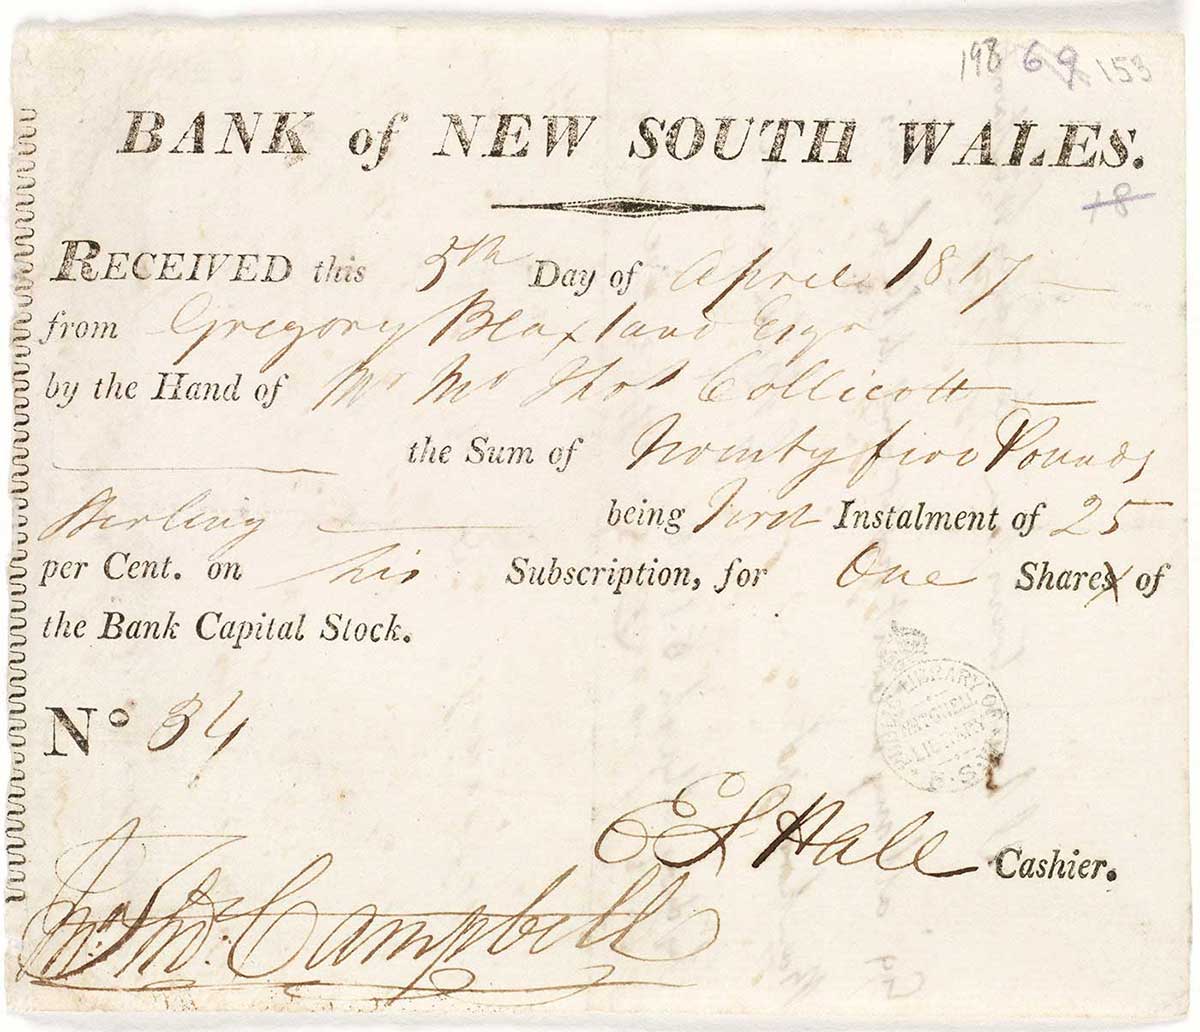 198 69 153
BANK of NEW SOUTH WALES.
18
RECEIVED this 5th Day of April 1817
from Gregory Blaxland Esqr
by the Hand of Mr Mr Thos Collicott
the Sum of Twenty five Pounds
Sterling being First Instalment of 25
per Cent. on his Subscription, for One Shares of
the Bank Capital Stock.
No 34
PUBLIC LIBRARY OF N.S.W.
MITCHELL
LIBRARY
E S Hall Cashier.
Jno. Thos. Campbell